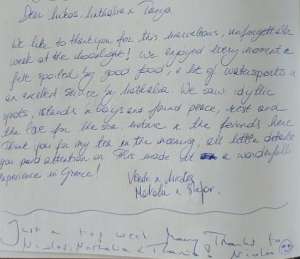 Dear Lukas, Nathalia & Tanja
We like to thank you for this marvellous, unforgettable
week at the Moonlight! We enjoyed every moment &
felt spoiled by good food, a lot of watersports &
an excellent service by Nathalia. We saw idyllic
spots, islands & bays and found peace, rest and
the love for the sea, nature & the friends here
Thank you for my tea in the morning, all little details
you paid attention on. This made it a wonderful
experience in Greece!
&
Just a top week, many Thanks to
Nicolas, Nathalia &